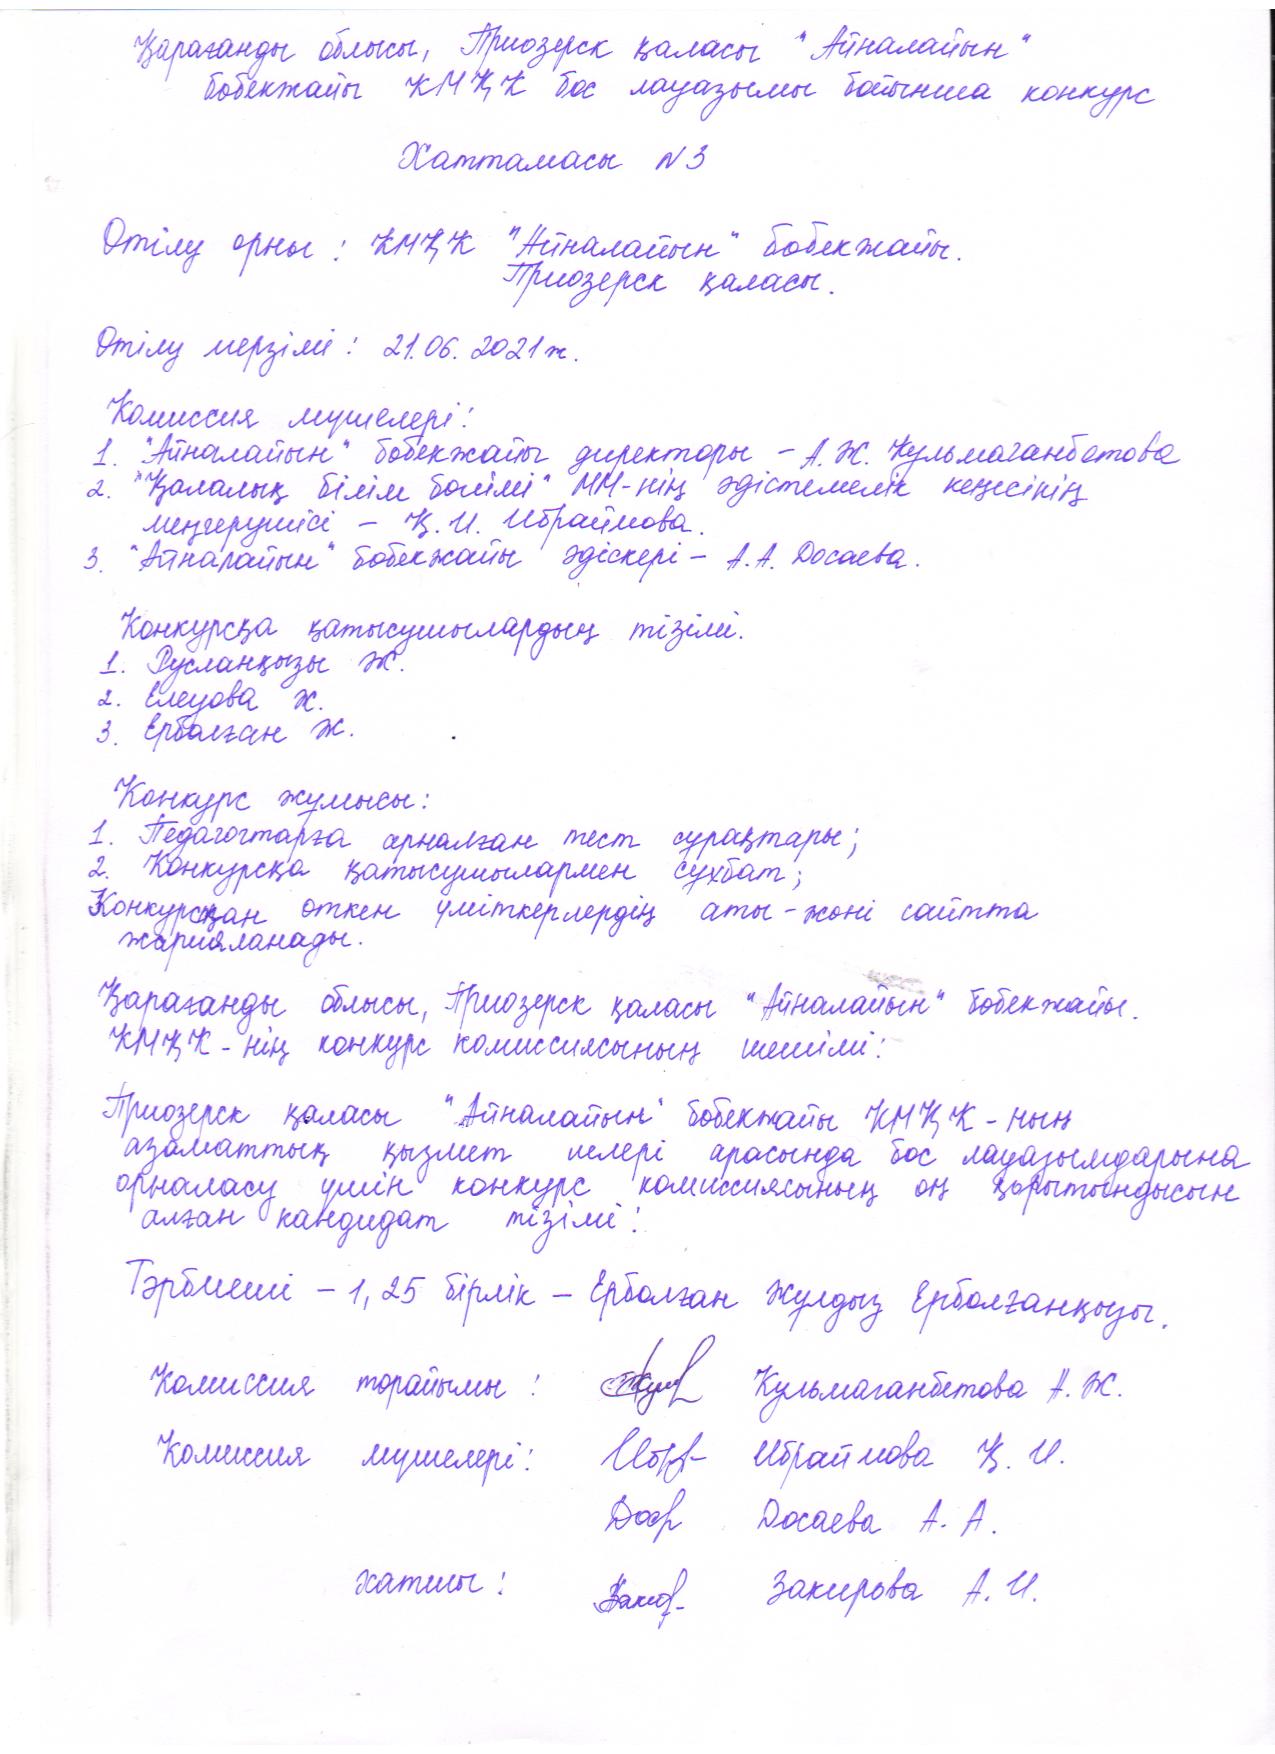 Қарағанды облысы, Приозерск қаласы "Айналайын"
бөбекжайы КМҚК бос лауазымы бойынша конкурс
Хаттамасы N3
Өтілу орны: КМҚК "Айналайын" бөбекжайы.
Приозерск қаласы.
Өтілу мерзімі: 21.06.2021ж.
Комиссия мүшелері:
1. "Айналайын" бөбекжайы директоры - А.Ж. Кульмаганбетова
2. "Қалалық білім бөлімі" ММ-нің әдістемелік кеңесінің
меңгерушісі - Қ.И. Ибраимова.
3. "Айналайын" бөбекжайы әдіскері - А.А. Досаева.
Конкурсқа қатысушылардың тізімі.
1. Русланқызы Ж.
2. Елеуова Ж.
3. Ерболған Ж.
Конкурс жұмысы:
1. Педагогтарға арналған тест сұрақтары;
2. Конкурсқа қатысушылармен сұхбат;
Конкурсқан өткен үміткерлердің аты-жөні сайтта
жарияланады.
Қарағанды облысы, Приозерск қаласы "Айналайын" бөбекжайы.
КМҚК-нің конкурс комиссиясының шешімі:
Приозерск қаласы "Айналайын" бөбекжайы КМҚК-ның
азаматтық қызмет иелері арасында бос лауазымдарына
орналасу үшін конкурс комиссиясының оң қорытындысын
алған кандидат тізімі:
Тәрбиеші - 1,25 бірлік - Ерболған Жулдыз Ерболғанқызы.
Комиссия төрайымы: Кульмаганбетова А.Ж.
Комиссия мүшелері: Ибраимова Қ.И.
Досаева А.А.
хатшы: Закирова А.И.